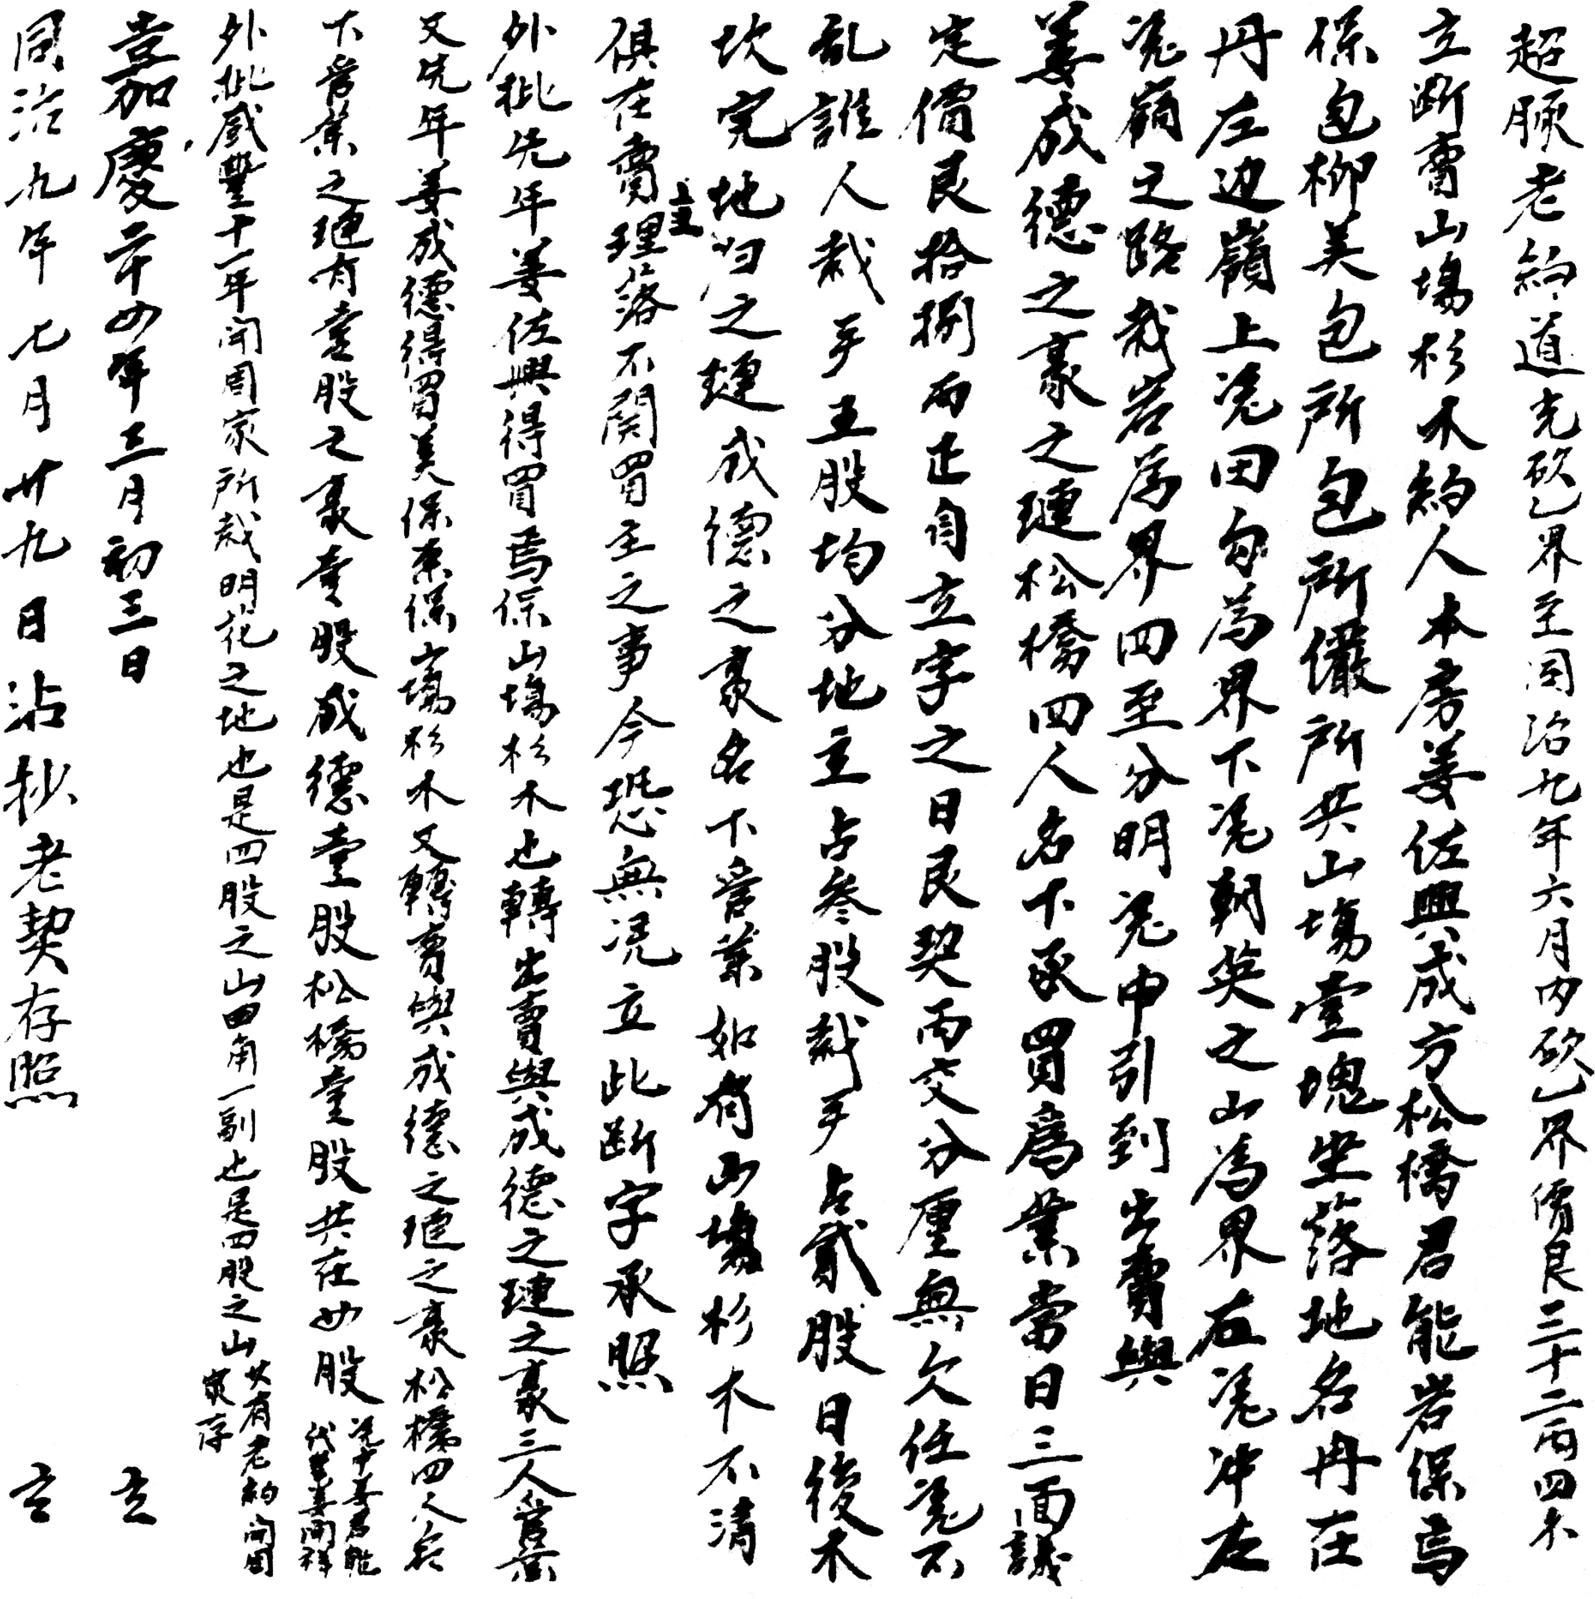 超脈老約道光砍乙界至同治九年六月内砍乙界價艮三十二両四木
立断賣山塲杉木約人本房姜佐興成方松橋君能岩保烏
保包柳美包所包所儼所共山塲壹塊坐落地名冉在
丹左边嶺上凴田角為界下凴朝英之山為界右凴冲左
凴嶺之路栽岩為界四至分明凴中引到出賣與
姜成德之豪之璉松橋四人名下承買爲業當日三面議
定價艮拾捌両正自立字之日艮契両交分厘無欠任凴不
乱誰人栽手五股均分地主占叁股栽手占貳股日後木
坎完地归之璉成德之豪名下管業如有山塲杉木不清
俱在賣主理落不関買主之事今恐無凴立此断字承照
外批先年姜佐興得買烏保山塲杉木也轉出賣與成德之璉之豪三人管業
又先年姜成德得買美保束保山塲杉木又轉賣與成德之璉之豪松橋四人名
下管業之璉有壹股之豪壹股成德壹股松橋壹股共在四股 凴中姜君能
代筆姜開祥
外批咸豐十一年開周家所栽明花之地也是四股之山田角一副也是四股之山 共有老約開周
家存
嘉慶二十四年三月初三日 立
同治九年七月廿九日沾抄老契存照 立